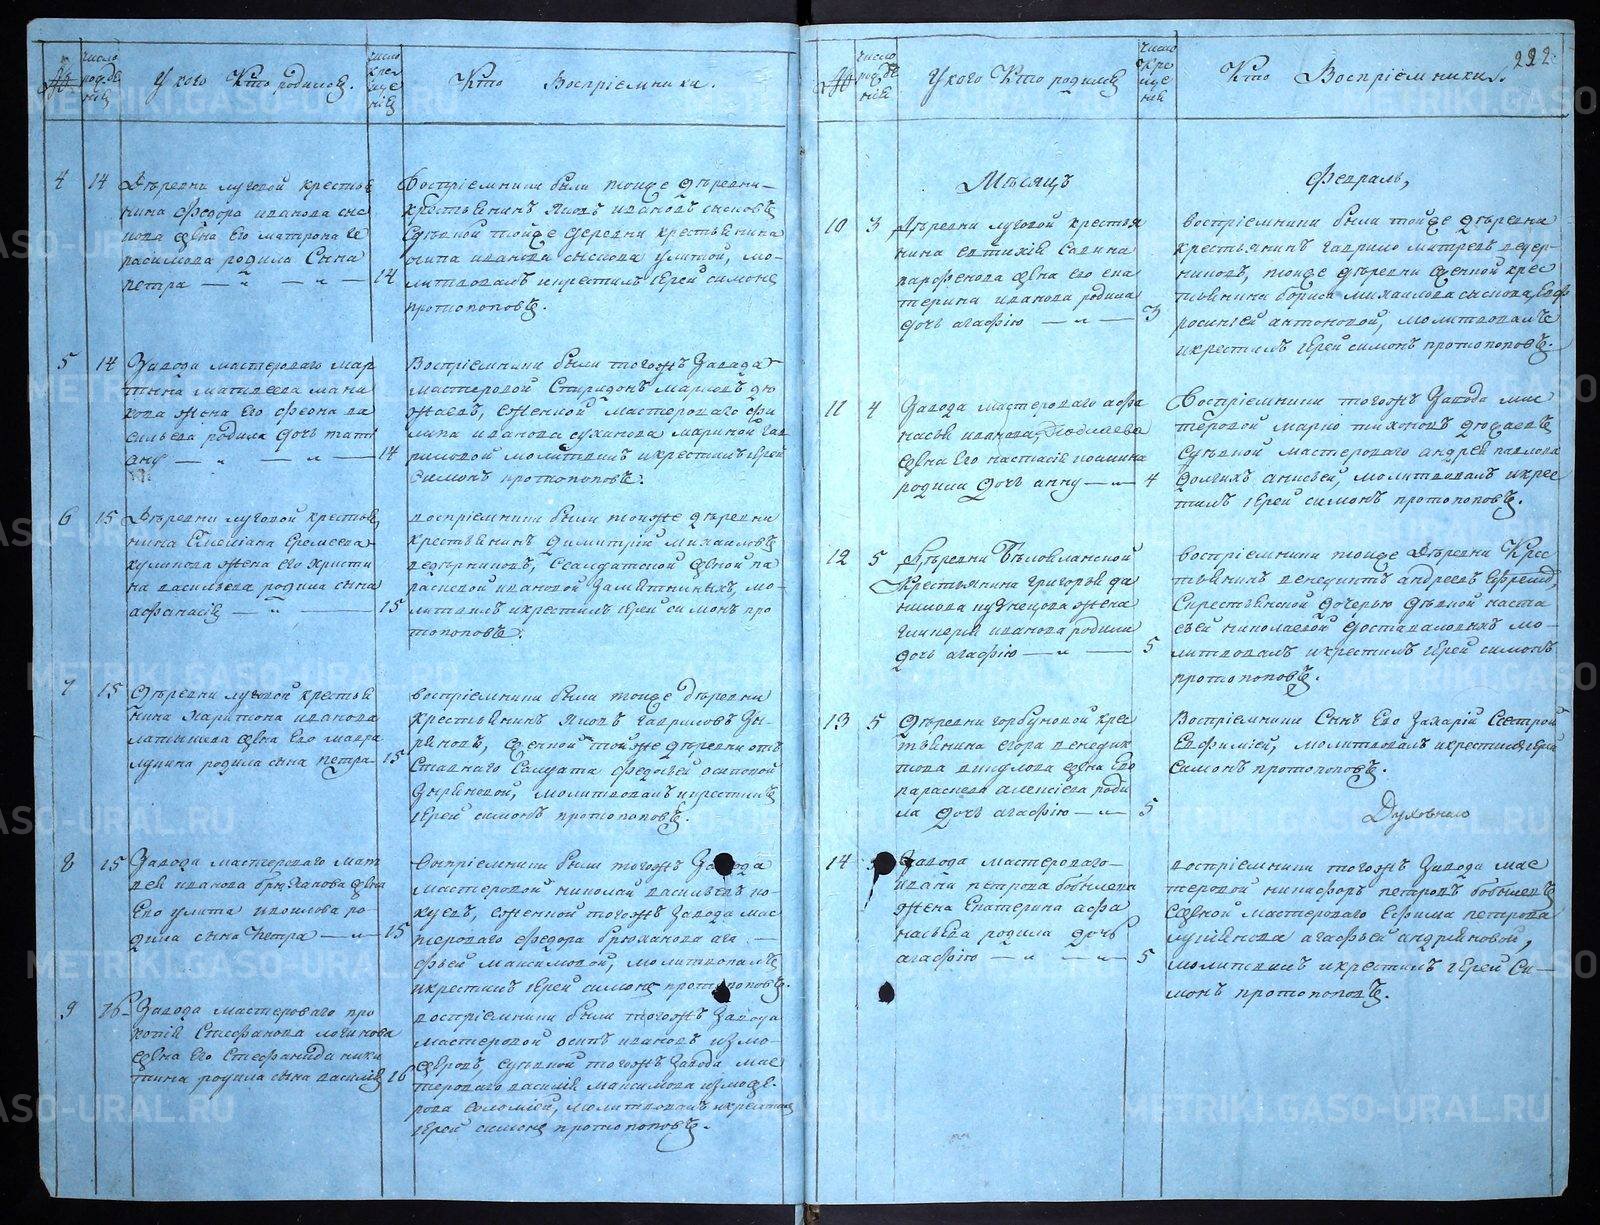 №
число рождения
У кого Кто родился.
число крещения
Кто Восприемники.
4 14 Деревни луговой крестья
нина Федора иванова сыс
кова жена Его матрона Ге
расимова родила Сына
петра 14
Восприемники были тойже деревни
крестьянинъ Яковъ ивановъ сысковъ
Сдевкой тойже деревни крестьянина
иванова сыскова улитой, мо-
литвовалъ икрестилъ Iерей симонъ
протопоповъ.
5 14 Завода мастероваго мар
тына матвеева мани
кова жена Его феона ва
сильева родила дочь тати
ану 14
Восприемники были тогожъ Завода
мастеровой Спиридонъ марковъ дю
жаевъ, сженкой мастероваго фи
липа иванова суханова мариной гав
риловой молитвилъ икрестилъ Iерей
Симонъ протопоповъ.
6 15 Деревни луговой крестья
нина Емелiана Еремеева
куликова жена Его христи
на васильева родила сына
афанасiя 15
восприемники были тойже деревни
крестьянинъ Димитрiй михаиловъ
ведерниковъ, Ссалдатской женой па
расковьей ивановой Замятниныхъ, мо-
литвилъ икрестилъ Iерей симонъ про
топоповъ.
7 15 Деревни луговой крестья
нина Харитона иванова
латышева жена Его мавра
лукина родила сына петра 15
восприемники были тойже деревни
крестьянинъ Яковъ гавриловъ Ды-
ряновъ, сженкой тойже деревни отъ
ставнаго Салдата федосьей осиповой
Дыряновой, молитвовалъ икрестилъ
Iерей симонъ протопоповъ.
8 15 Завода мастероваго мат
вея иванова брюханова жена
Его улита ивойлова ро-
дила сына петра 15
Восприемники были тогожъ Завода
мастеровой николай васильевъ ко-
куевъ, сженкой тогожъ Завода мас
тероваго Федора брюханова ага
фьей максимовой, молитвовалъ
икрестилъ Iерей симонъ протопоповъ.
9 16 Завода мастероваго про
копiя Стефанова логинова
жена Его Стефанида ники
тина родила сына василiя 16
восприемники были тогожъ Завода
мастеровой осипъ ивановъ измо-
жеровъ, сдевкой тогожъ Завода мас
тероваго василiя максимова изможе-
рова соломiей, молитвовалъ икрестилъ
Iерей симонъ протопоповъ.
222.
№
число рождения
У кого Кто родился
число крещения
Кто Восприемники.
Месяцъ Февраль,
10 3 Деревни луговой крестья
нина евтихiя Савина
парфенова жена его ека
терина иванова родила
дочь агафiю 3
восприемники были тойже деревни
крестьянинъ гаврило митревъ ведер-
никовъ, тойже деревни сженкой крес
тьянина бориса михаилова сыскова Евф
росинiей антоновой, молитвовалъ
икрестилъ Iерей симонъ протопоповъ.
11 4 Завода мастероваго афа
насья иванова,
жена Его настасiя козмина
родила дочь анну 4
Восприемники тогожъ Завода мас
теровой марко тихоновъ дюжаевъ
Сдевкой мастероваго андрея павлова
Долгихъ анисьей, молитвовалъ икрес
тилъ Iерей симонъ протопоповъ.
12 5 Деревни Беловланской
Крестьянина григорья да
нилова кузнецова жена
гликерiя иванова родила
дочь агафiю 5
восприемники тойже Деревни Крес
тьянинъ венедиктъ андреевъ Ефремо,
Скрестьянской дочерью девкой наста
сьей николаевой Доставаловыхъ мо-
литвовалъ икрестилъ Iерей симонъ
протопоповъ.
13 5 Деревни горбуновой крес
тьянина егора венедик
това викулова жена Его
параскева алексiева роди
ла дочь агафiю 5
Восприемники Сынъ Его Захарiй Ссестрой
Евфимiей, молитвовалъ икрестилъ Iерей
симонъ протопоповъ.
Духовнаго
14 5 Завода мастероваго
ивана петрова бобылева
жена Екатерина афа
насьева родила дочь
агафiю 5
восприемники тогожъ Завода мас
теровой никифоръ петровъ бобылевъ
Сженкой мастероваго Ефима петрова
лукiянова агафьей андрияновой,
молитвилъ икрестилъ Iерей Си-
монъ протопоповъ.
METRIKI.GASO-URAL.RU